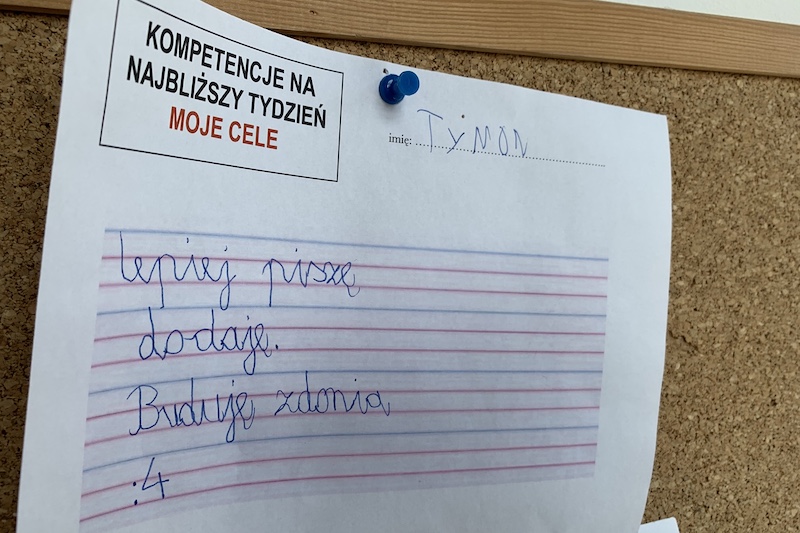 KOMPETENCJE NA
NAJBLIŻSZY TYDZIEŃ
MOJE CELE
imię: TYMON
lepiej piszę
dodaję.
Buduję zdonia
:4